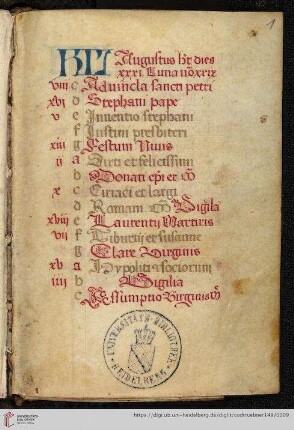 1
KL Augustus h̄t dies
xxxi. Luna vō xxix
viii c Ad vincla sancti petri
xvi d Stephani pape
v e Inuentio stephani
f Justini presbiteri
xiii g Festum Niuis
ii a Sixti et felicissimi
b Donati ep̄i et m̄
x c Ciriaci et largi
d Romani m̄ Vigilia
xviii e Laurentii Martiris
vii f Tiburtii et susanne
g Clare Virginis
xv a Ypoliti 7 sociorum
iiii b Vigilia
c Assumptio Virginis m̄
UNIVERSITÄTS-BIBLIOTHEK
HEIDELBERG
UNIVERSITÄTS-
BIBLIOTHEK
HEIDELBERG